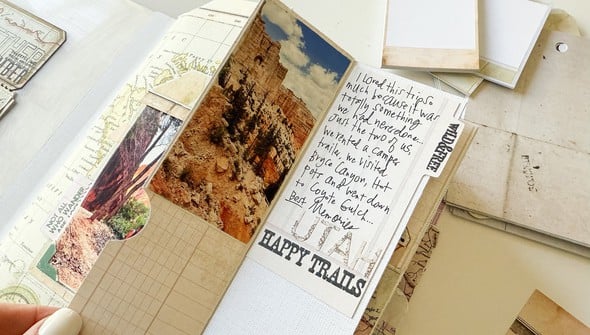 NOT ALL
WHO WANDER
I Loved this trip so
much because it was
totally something
we had never done.
Just the two of us,
we rented a camper
trailer, we visited
Bryce Canyon, Hot
pots and went down
to Coyote Gulch...
Best Memories
UTAH
HAPPY TRAILS
WILD & FREE